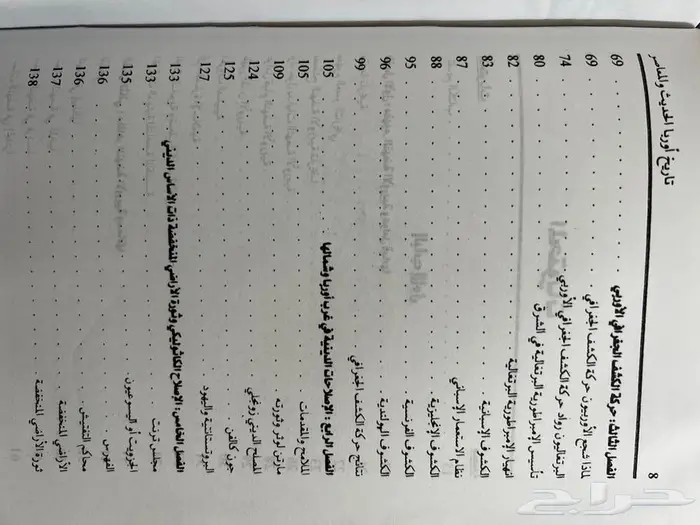 8
تاريخ أوربا الحديث والمعاصر
الفصل الثالث: حركة الكشف الجغرافي الأوربي . . . 69
لماذا شجع الأوربيون حركة الكشف الجغرافي . . . 69
البرتغاليون رواد حركة الكشف الجغرافي الأوربي . . . 74
تأسيس الإمبراطورية البرتغالية في الشرق . . . 80
انهيار الإمبراطورية البرتغالية . . . 82
الكشوف الإسبانية . . . 83
نظام الاستعمار الإسباني . . . 87
الكشوف الإنجليزية . . . 88
الكشوف الفرنسية . . . 95
الكشوف الهولندية . . . 96
نتائج حركة الكشف الجغرافي . . . 99
الفصل الرابع: الإصلاحات الدينية في غرب أوربا وشمالها . . . 105
الملامح والمقدمات . . . 105
مارتن لوثر وثورته . . . 109
المصلح الديني زونجلي . . . 124
جون كالفن . . . 125
البروتستانتية واليهود . . . 127
الفصل الخامس: الإصلاح الكاثوليكي وثورة الأراضي المنخفضة ذات الأساس الديني . . . 133
مجلس ترنت . . . 133
الجزويت أو اليسوعيون . . . 135
الفهرس . . . 136
محاكم التفتيش . . . 136
الأراضي المنخفضة . . . 137
ثورة الأراضي المنخفضة . . . 138
حراج